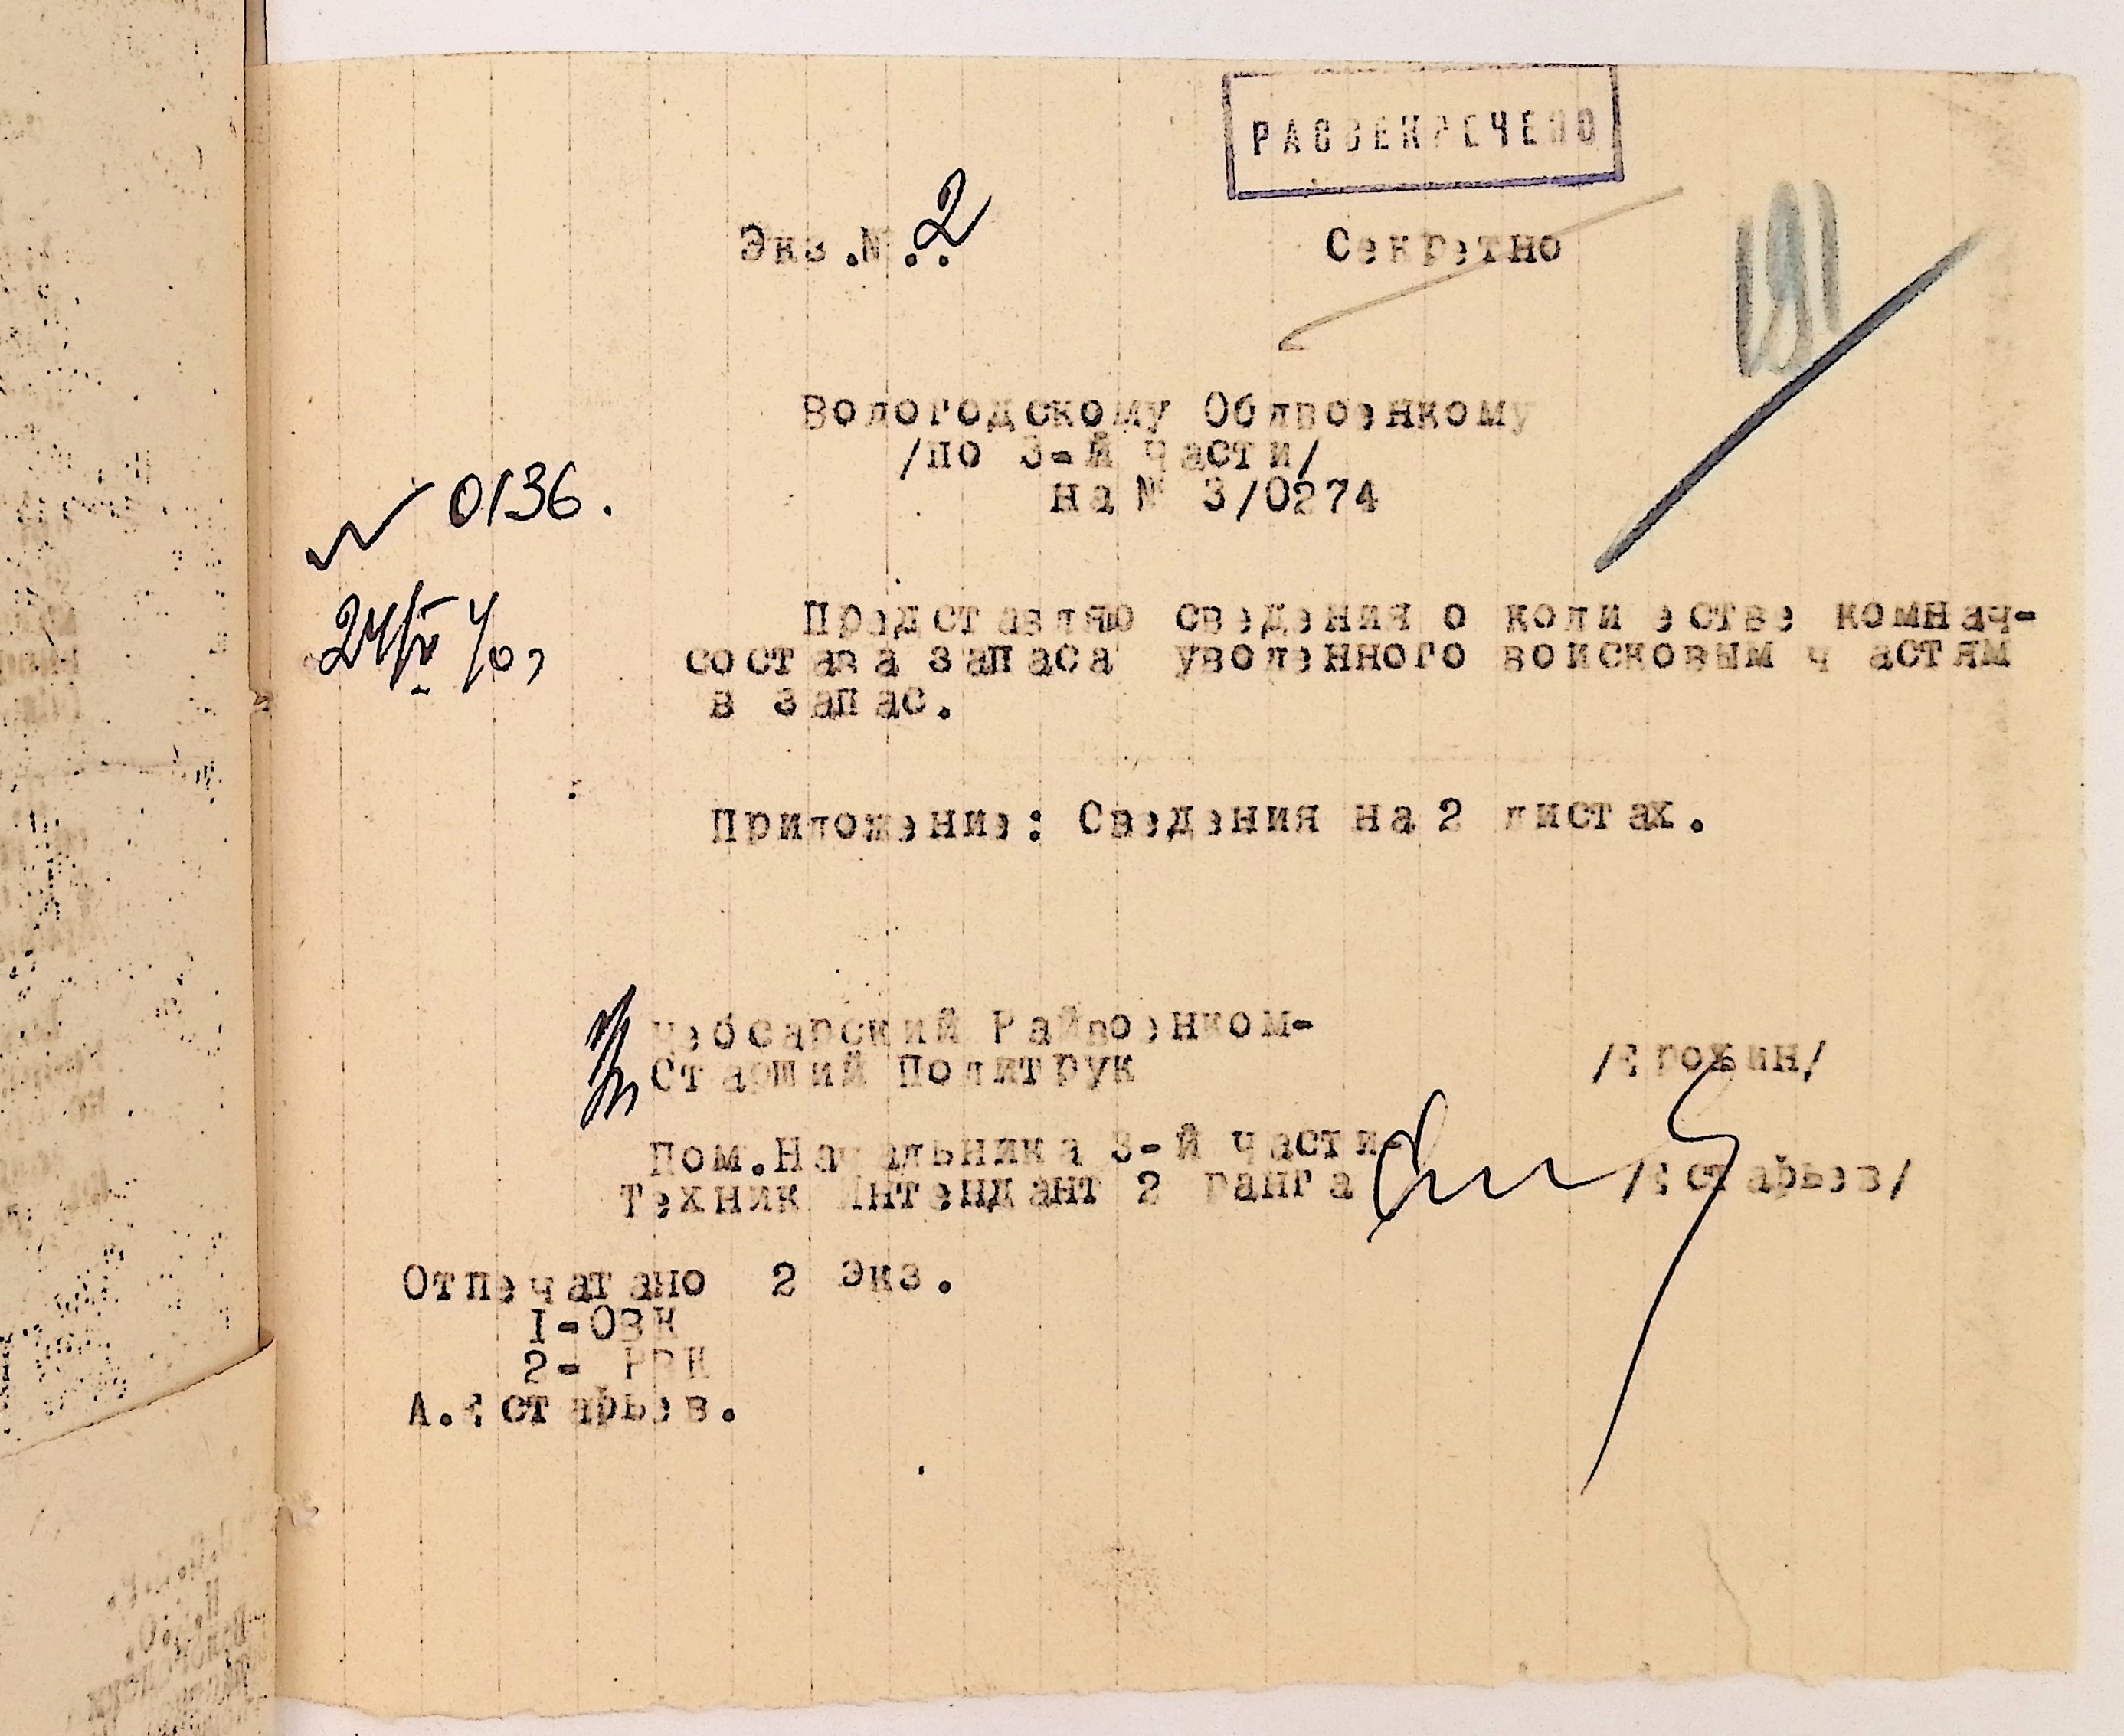 РАССЕКРЕЧЕНО
Экз.№..2
Секретно
191
Вологодскому Облвоенкому
/по 3-й части/
на № 3/0274
№ 0136.
Представляю сведения о количестве комнач-
состава запаса уволенного войсковым частям
в запас.
Приложение: Сведения на 2 листах.
Чебсарский Райвоенком-
Старший Политрук
/Ерохин/
Пом.Начальника 3-й части-
Техник Интендант 2 ранга
/Естафьев/
Отпечатано 2 экз.
1-ОВК
2- РВК
А.Естафьев.